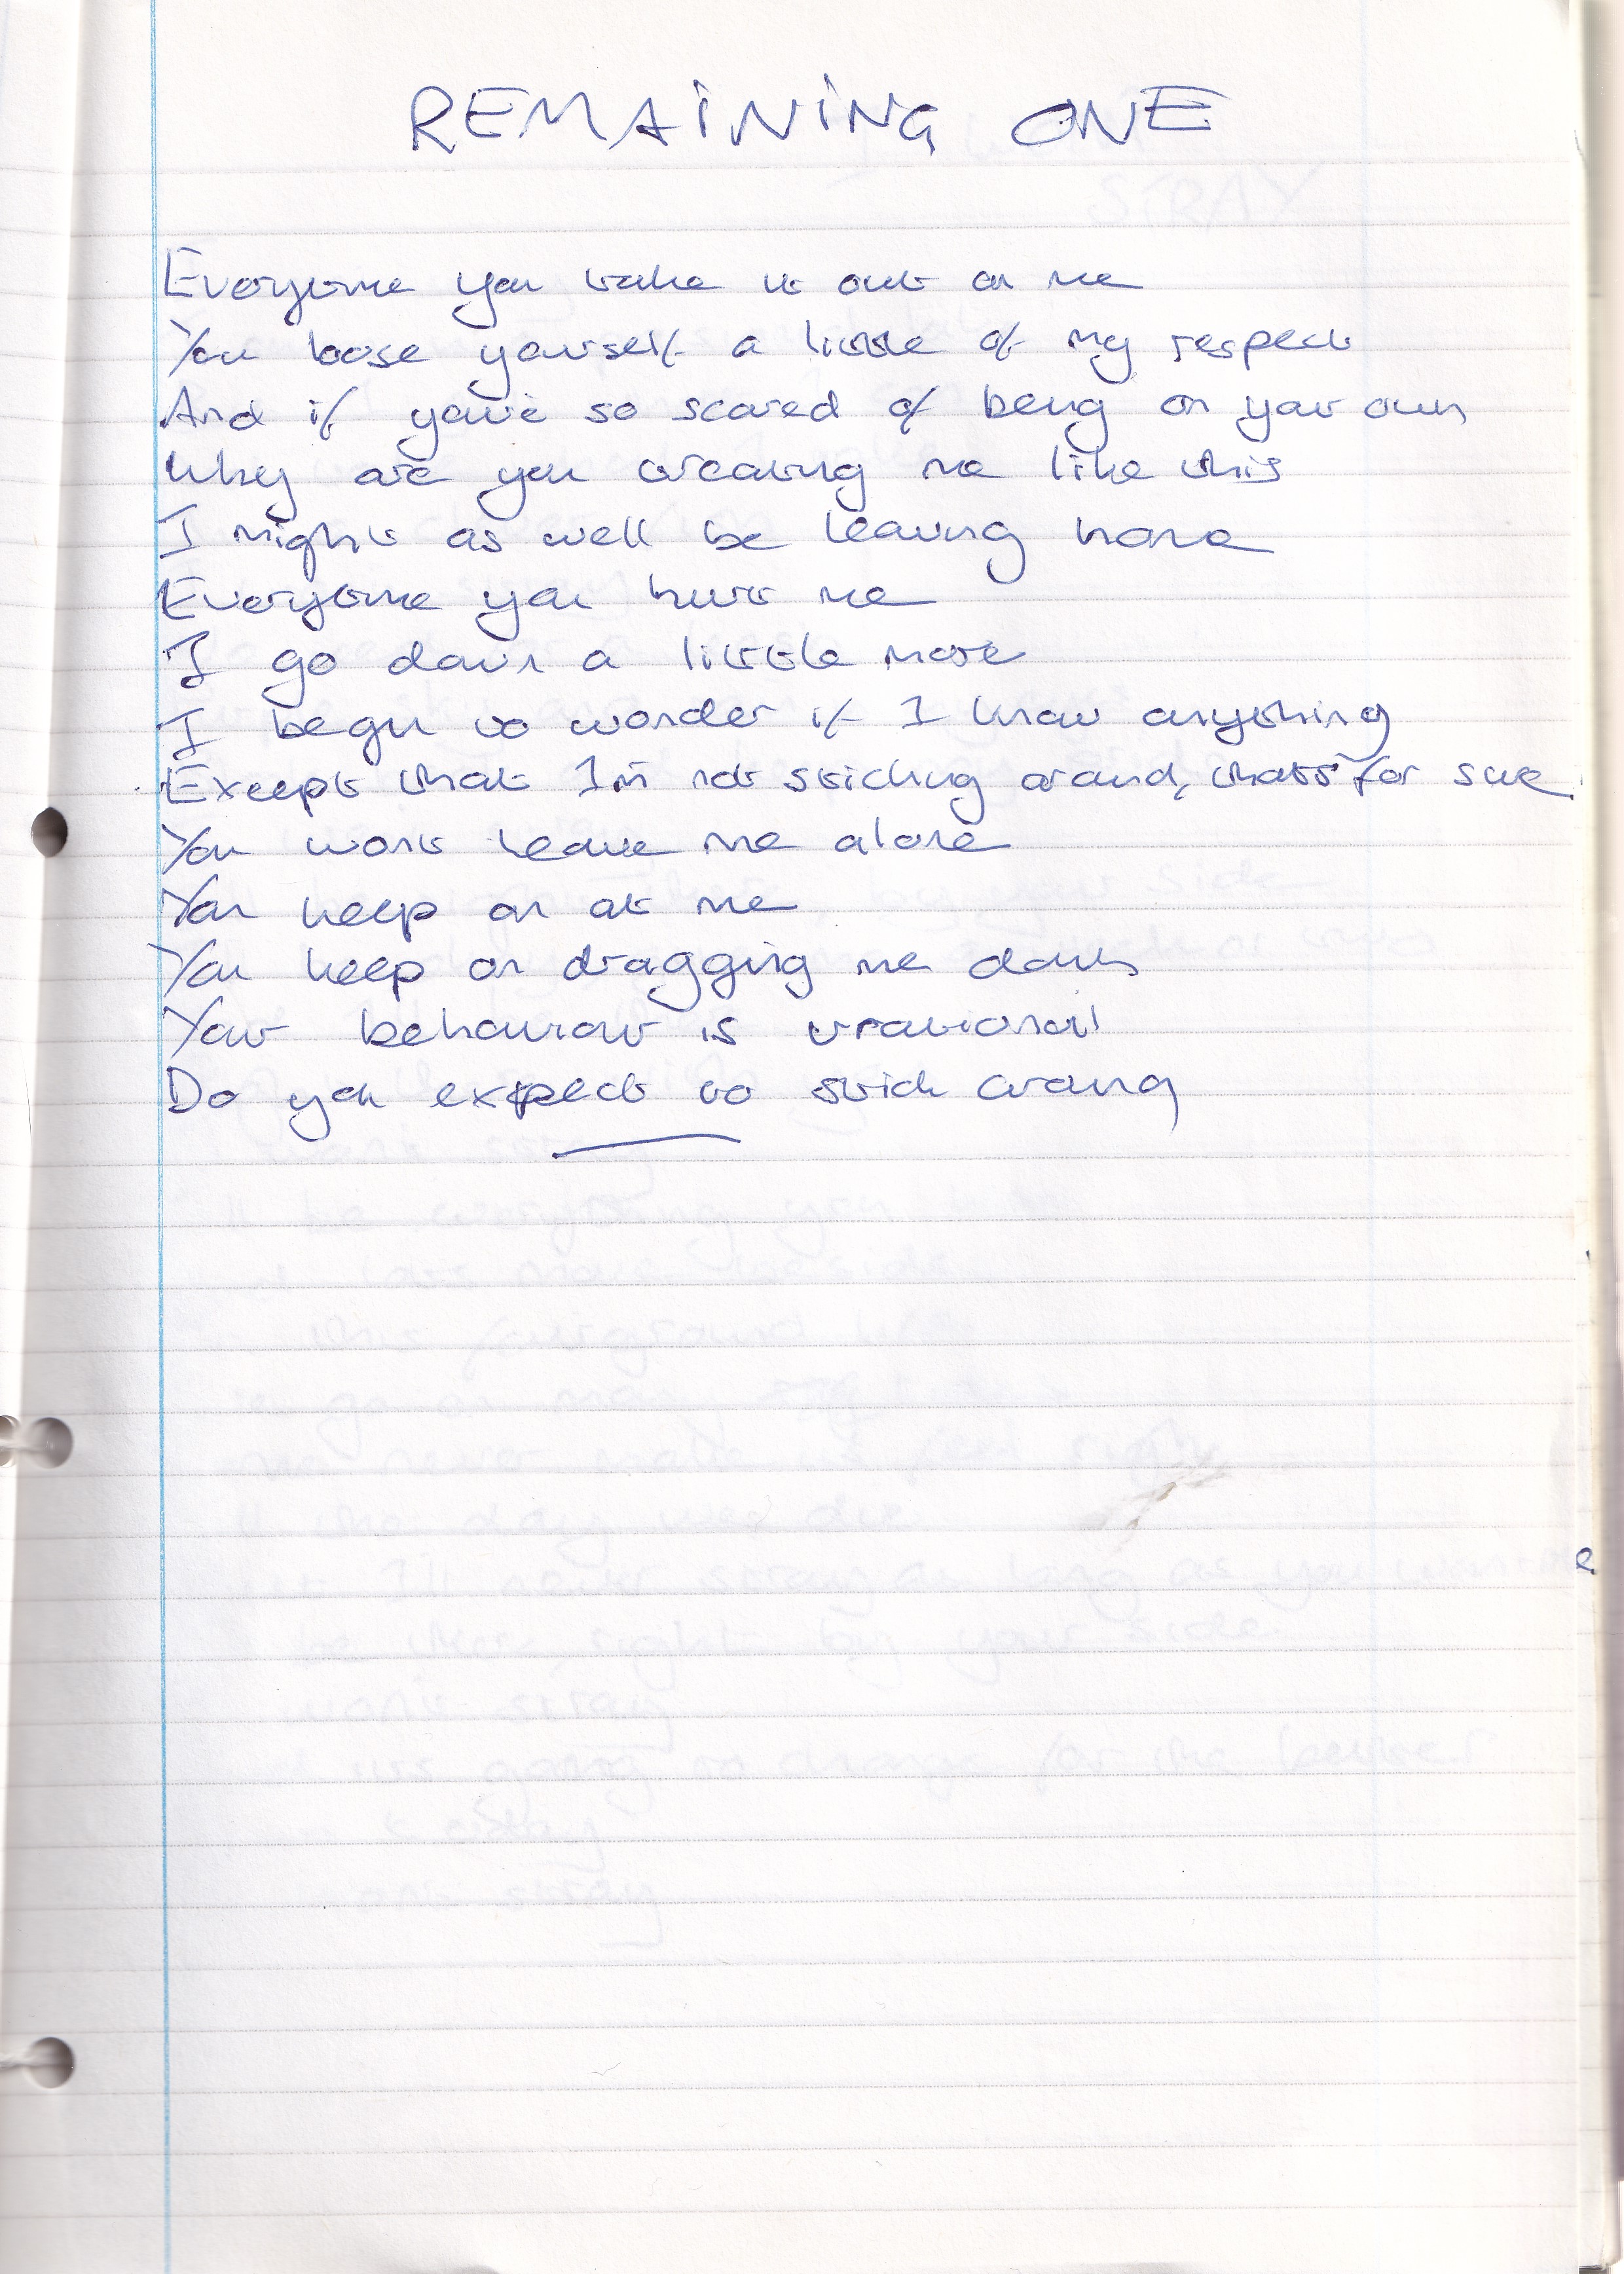 REMAINING ONE
Everytime you take it out on me
You loose yourself a little of my respect
And if you're so scared of being on your own
Why are you treating me like this
I might as well be leaving home
Everytime you hurt me
I go down a little more
I begin to wonder if I know anything
Except that I'm not sticking around, that's for sure
You wont leave me alone
You keep on at me
You keep on dragging me down
Your behaviour is irrational
Do you expect to stick around